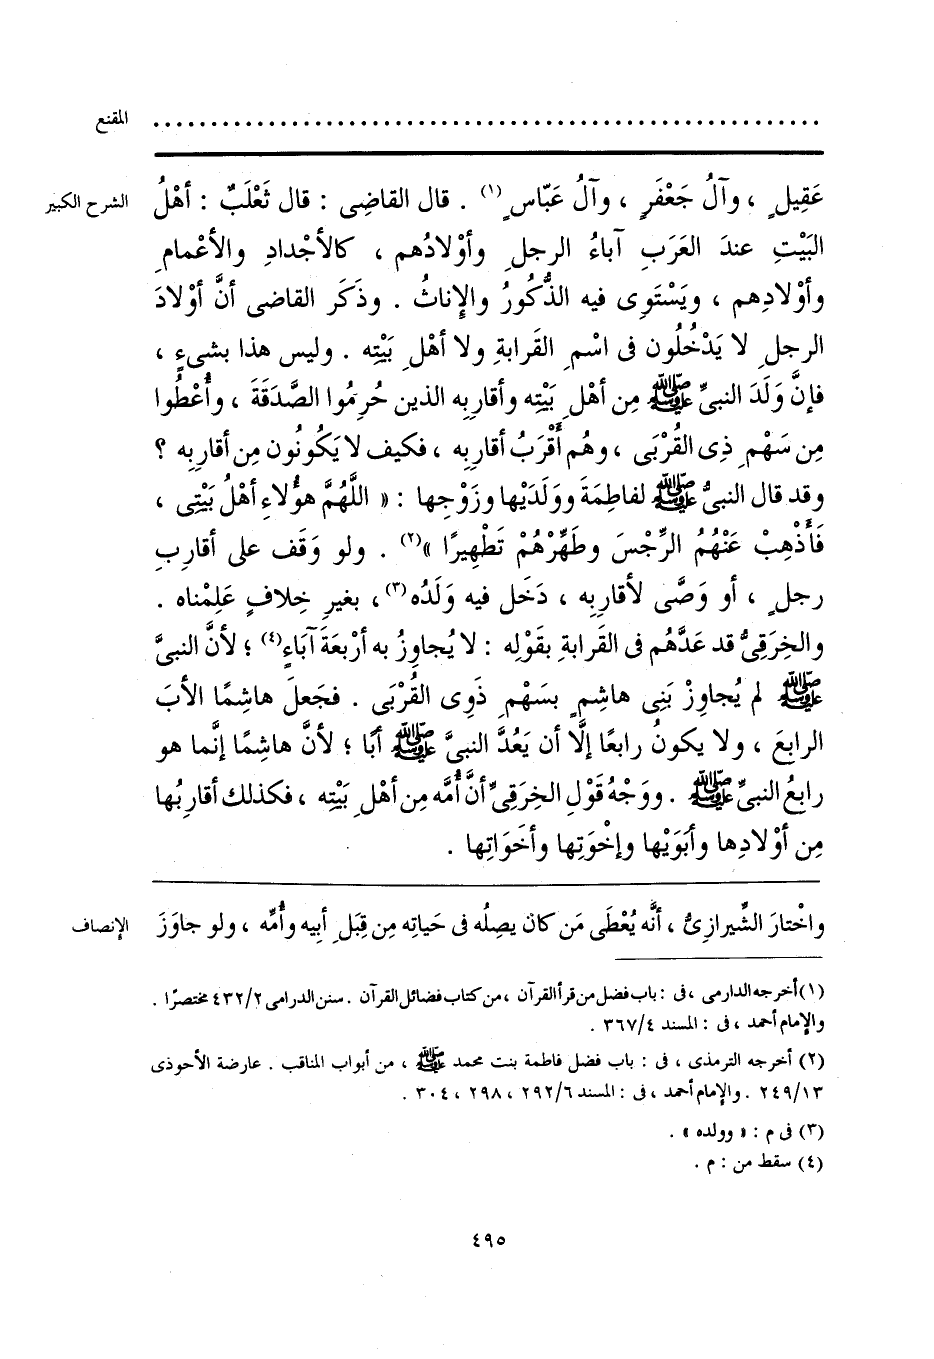 المقنع ......................................................................
الشرح الكبير
عَقِيلٍ ، وآلُ جَعْفَرٍ ، وآلُ عَبّاسٍ(١) . قال القاضِى : قال ثَعْلَبٌ : أهْلُ
البَيْتِ عندَ العَرَبِ آباءُ الرجلِ وأوْلادُهم ، كالأجْدادِ والأعْمامِ
وأوْلادِهم ، ويَسْتَوِى فيه الذُّكُورُ والإناثُ . وذَكَر القاضى أنَّ أوْلادَ
الرجلِ لا يَدْخُلُون فى اسْمِ القَرابةِ ولا أهْلِ بَيْتِه . وليس هذا بشىءٍ ،
فإنَّ وَلَدَ النبىِّ ﷺ مِن أهْلِ بَيْتِه وأقارِبِه الذين حُرِمُوا الصَّدَقَةَ ، وأُعْطُوا
مِن سَهْمِ ذِى القُرْبَى ، وهُم أَقْرَبُ أقارِبِه ، فكيف لا يَكُونُون مِن أقارِبِه ؟
وقد قال النبىُّ ﷺ لفاطِمَةَ ووَلَدَيْها وزَوْجِها : « اللَّهُمَّ هؤُلاءِ أهْلُ بَيْتِى ،
فَأَذْهِبْ عَنْهُمُ الرِّجْسَ وطَهِّرْهُمْ تَطْهِيرًا »(٢) . ولو وَقَف على أقارِبِ
رجلٍ ، أو وَصَّى لأقارِبِه ، دَخَل فيه وَلَدُه(٣) ، بغيرِ خِلافٍ عَلِمْناه .
والخِرَقِىُّ قد عَدَّهُم فى القَرابةِ بقَوْلِه : لا يُجاوِزُ به أرْبعَةَ آبَاءٍ(٤) ؛ لأنَّ النبىَّ
ﷺ لم يُجاوِزْ بَنِى هاشِمٍ بسَهْمِ ذَوِى القُرْبَى . فجَعلَ هاشِمًا الأبَ
الرابعَ ، ولا يكونُ رابعًا إلَّا أن يَعُدَّ النبىَّ ﷺ أبًا ؛ لأنَّ هاشِمًا إنَّما هو
رابعُ النبىِّ ﷺ . ووَجْهُ قَوْلِ الخِرَقِىِّ أنَّ أُمَّه مِن أهْلِ بَيْتِه ، فكذلك أقارِبُها
مِن أوْلادِها وأبَوَيْها وإخْوَتِها وأخَواتِها .
الإنصاف
واخْتارَ الشِّيرازِىُّ ، أنَّه يُعْطَى مَن كان يصِلُه فى حَياتِه مِن قِبَلِ أبِيه وأُمِّه ، ولو جاوَزَ
(١) أخرجه الدارمى ، فى : باب فضل من قرأ القرآن ، من كتاب فضائل القرآن . سنن الدرامى ٤٣٢/٢ مختصرًا .
والإمام أحمد ، فى : المسند ٣٦٧/٤ .
(٢) أخرجه الترمذى ، فى : باب فضل فاطمة بنت محمد ﷺ ، من أبواب المناقب . عارضة الأحوذى
٢٤٩/١٣ . والإمام أحمد ، فى : المسند ٢٩٢/٦ ، ٢٩٨ ، ٣٠٤ .
(٣) فى م : « وولده » .
(٤) سقط من : م .
٤٩٥